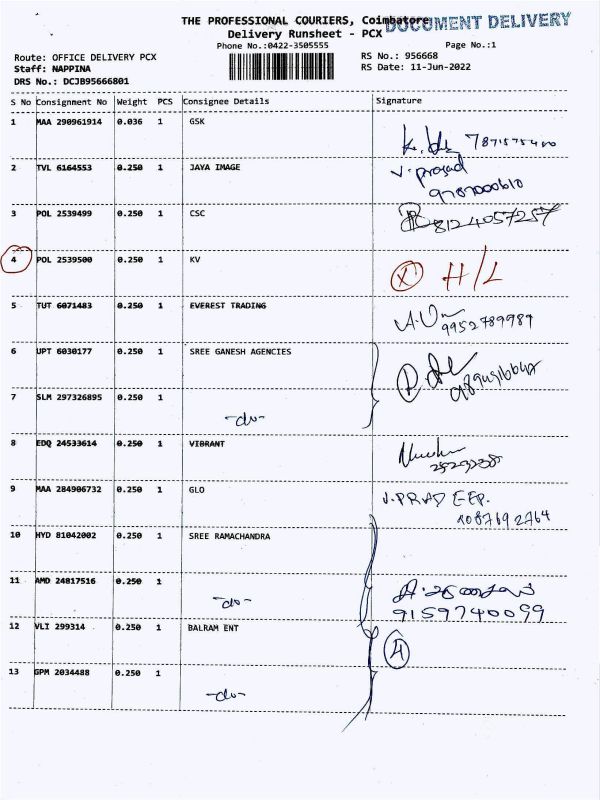 THE PROFESSIONAL COURIERS, Coimbatore
DOCUMENT DELIVERY
Delivery Runsheet - PCX
Phone No.:0422-3505555 Page No.:1
Route: OFFICE DELIVERY PCX RS No.: 956668
Staff: NAPPINA RS Date: 11-Jun-2022
DRS No.: DCJB95666801
S No Consignment No Weight PCS Consignee Details Signature
1 MAA 290961914 0.036 1 GSK
2 TVL 6164553 0.250 1 JAYA IMAGE V. prasad
9787000610
3 POL 2539499 0.250 1 CSC 8124057257
4 POL 2539500 0.250 1 KV X H/L
5 TUT 6071483 0.250 1 EVEREST TRADING
9952789989
6 UPT 6030177 0.250 1 SREE GANESH AGENCIES
7 SLM 297326895 0.250 1
-do-
8 EDQ 24533614 0.250 1 VIBRANT
9 MAA 284906732 0.250 1 GLO V. PRADEEP.
8087692764
10 HYD 81042002 0.250 1 SREE RAMACHANDRA
11 AMD 24817516 0.250 1
-do-
9159740099
12 VLI 299314 0.250 1 BALRAM ENT 4
13 GPM 2034488 0.250 1
-do-